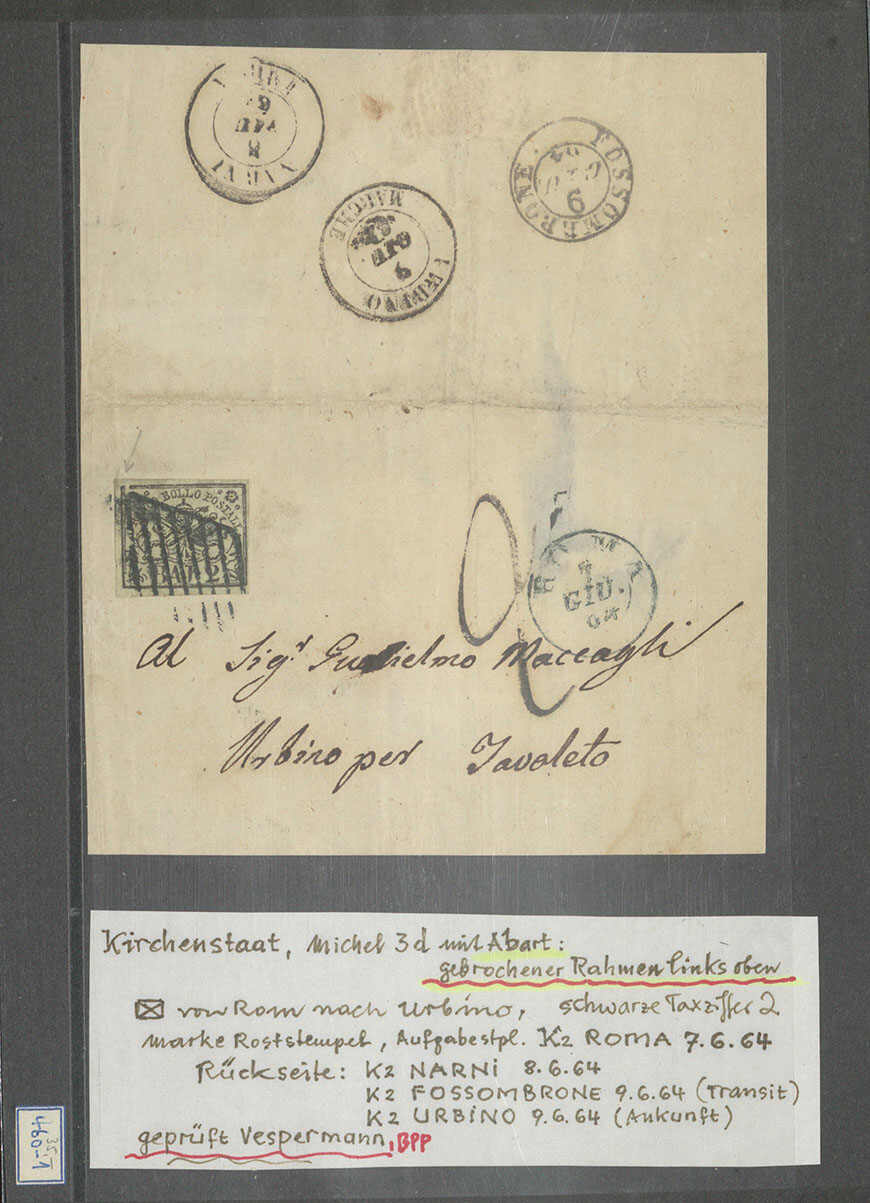 NARNI
8
FOSSOMBRONE
GIU
64
9
URBINO
MARCHE
GIU
9
BOLLO POSTALE
BAI. 2
2
ROMA
7
GIU.
64
Al Sigr Guglielmo Maccagli
Urbino per Tavoleto
Kirchenstaat, Michel 3d mit Abart:
gebrochener Rahmen links oben
von Rom nach Urbino, schwarze Taxziffer 2
Marke Roststempel, Aufgabestpl. K2 ROMA 7.6.64
Rückseite: K2 NARNI 8.6.64
K2 FOSSOMBRONE 9.6.64 (Transit)
K2 URBINO 9.6.64 (Ankunft)
geprüft Vespermann, BPP
35,-
460-1